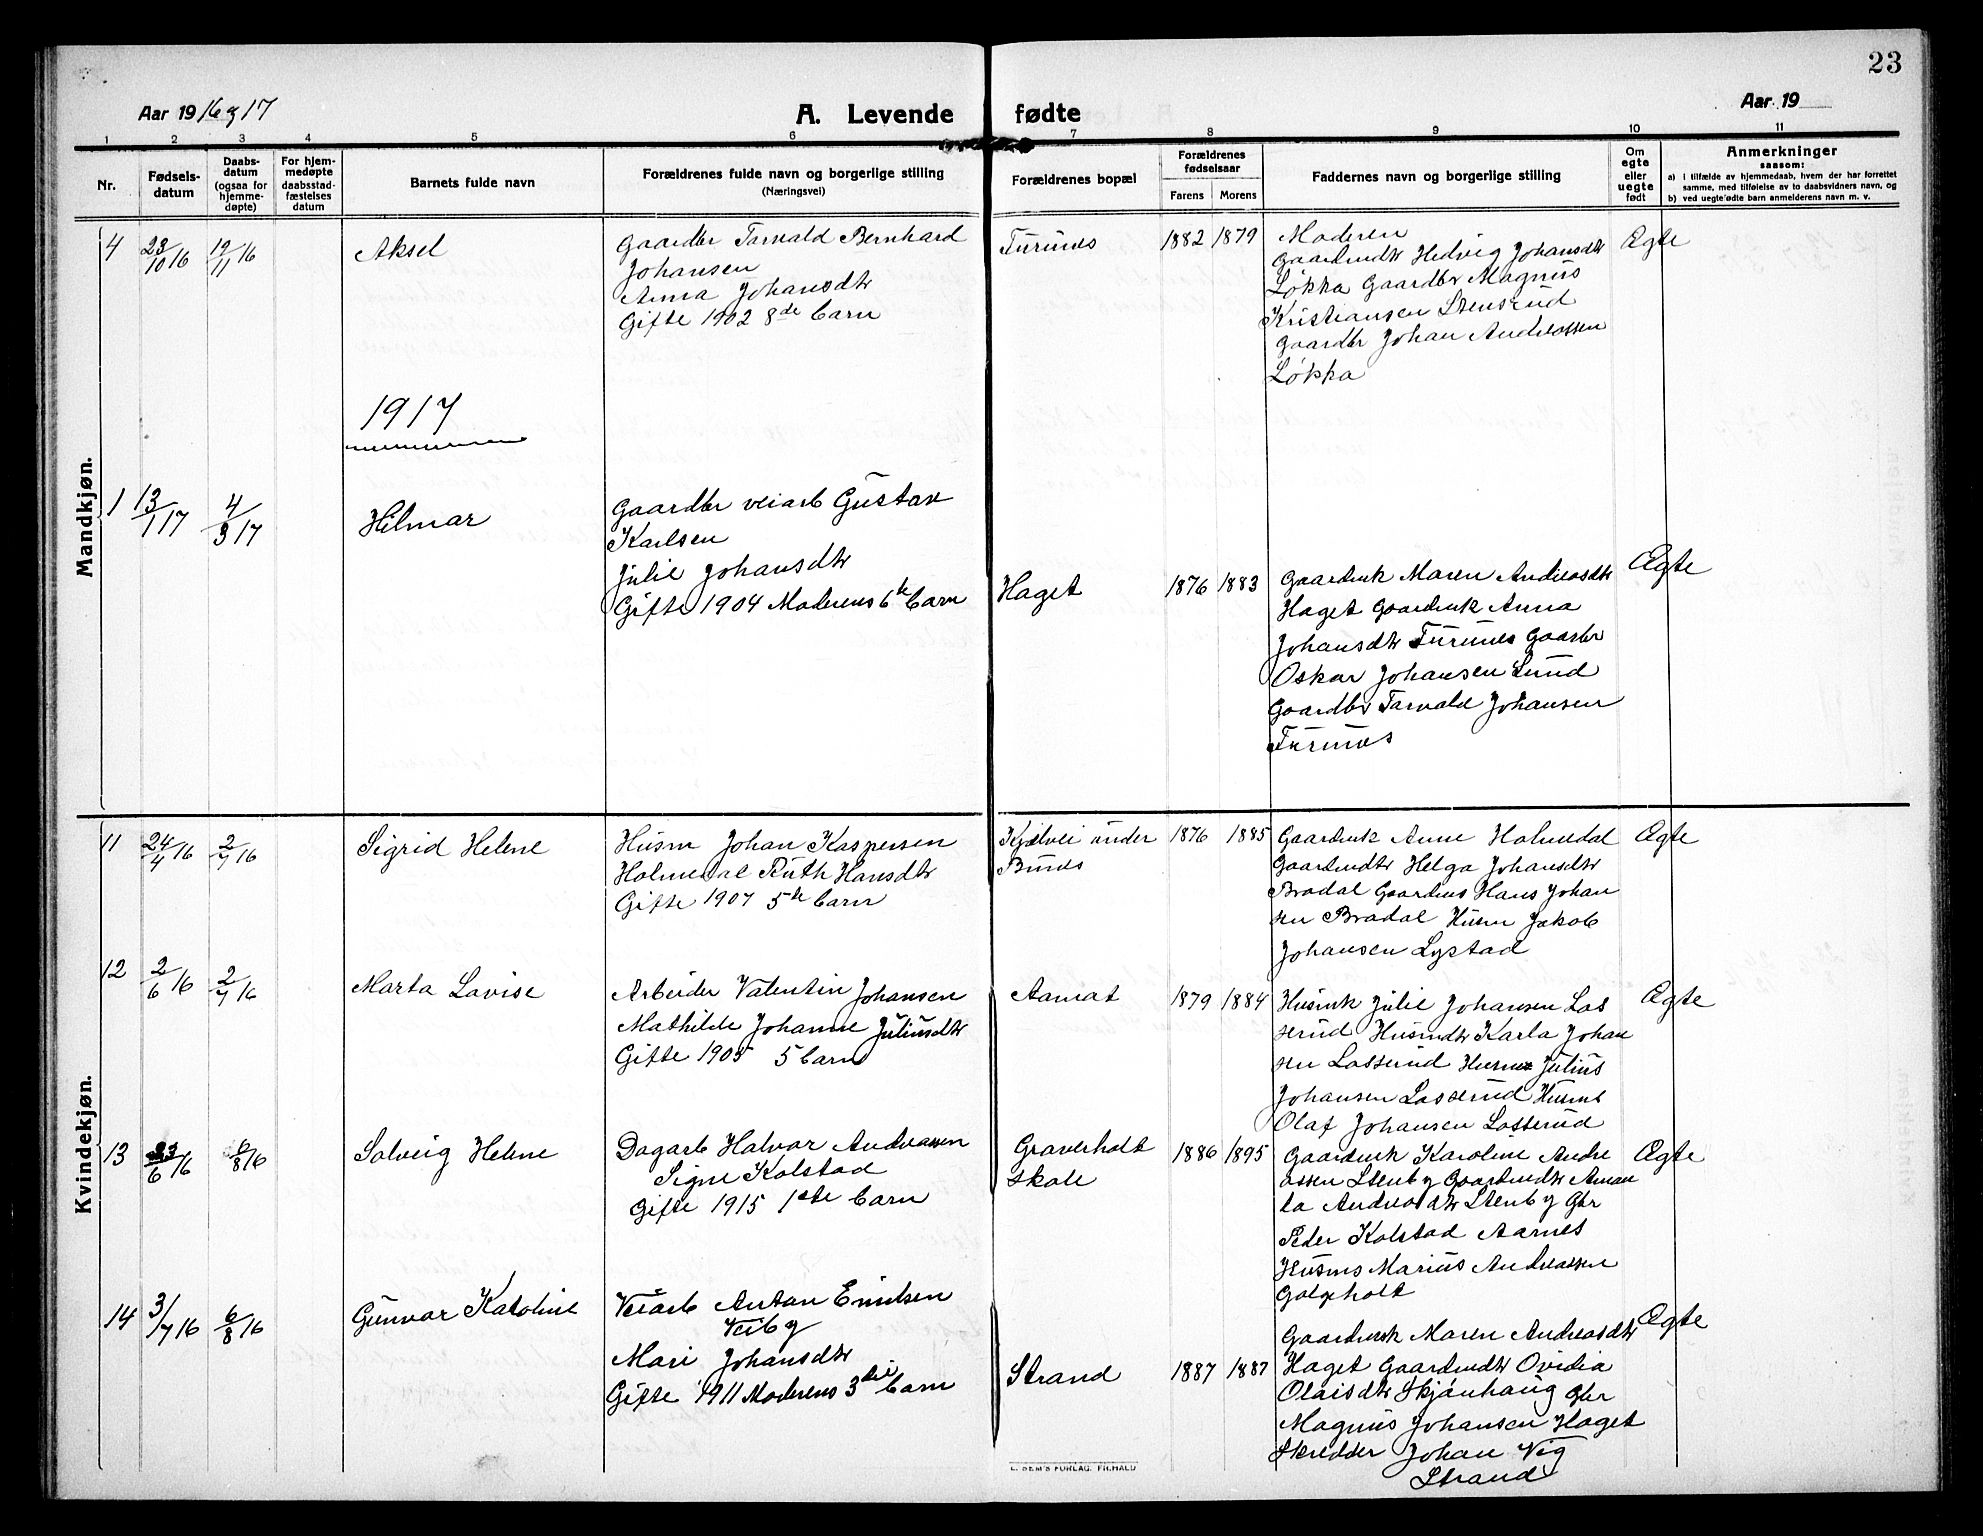 23
Aar 19 16 og 17
A. Levende fødte
Aar 19
1 2 3 4 5 6 7 8 9 10 11
Nr.
Fødsels-
datum
Daabs-
datum
(ogsaa for
hjemme-
døpte)
For hjem-
medøpte
daabsstad-
fæstelses
datum
Barnets fulde navn
Forældrenes fulde navn og borgerlige stilling
(Næringsvei)
Forældrenes bopæl
Forældrenes
fødselsaar
Farens Morens
Faddernes navn og borgerlige stilling
Om
egte
eller
uegte
født
Anmerkninger
saasom:
a) i tilfælde av hjemmedaab, hvem der har forrettet
samme, med tilføielse av to daabsvidners navn, og
b) ved uegtefødte barn anmelderens navn m. v.
Mandkjøn.
4 23/10 16 19/11 16 Aksel
Gaardbr Tarvald Bernhard
Johansen
Anna Johansdtr
Gifte 1902 8de barn
Furunes 1882 1879
Moderen
Gaardmdtr Hedvig Johansdtr
Løkka Gaardbr Magnus
Kristiansen Stensrud
Gaardbr Johan Andreassen
Løkka
Ægte
1917
1 13/1 17 4/3 17 Hilmar
Gaardbr veiarb Gustav
Karlsen
Julie Johansdtr
Gifte 1904 Moderens 6te barn
Haget 1876 1883
Gaardmk Maren Andreasdtr
Haget Gaardmk Anna
Johansdtr Furunes Gaarbr
Oskar Johansen Lund
Gaardbr Tarvald Johansen
Furunes
Ægte
Kvindekjøn.
11 24/4 16 2/7 16 Sigrid Helene
Husm Johan Kaspersen
Holmedal Ruth Hansdtr
Gifte 1907 5te barn
Kjølvei under
Bunes
1876 1885
Gaardmk Anne Holmedal
Gaardmdtr Helga Johansdtr
Bradal Gaardms Hans Johan
sen Bradal Husm Jakob
Johansen Lystad
Ægte
12 2/6 16 2/7 16 Marta Lovise
Arbeider Valentin Johansen
Mathilde Johanne Juliusdtr
Gifte 1905 5 barn
Aamot 1879 1884
Husmk Julie Johansen Los
serud Husmdtr Karla Johan
sen Losserud Husm Julius
Johansen Losserud Husms
Olaf Johansen Losserud
Ægte
13 23/6 16 6/8 16 Solveig Helene
Dagarb Halvor Andreassen
Signe Kolstad
Gifte 1915 1ste barn
Graverholt
skole
1886 1895
Gaardmk Karoline Andre
assen Stenby Gaardmdtr Aman
da Andreasdtr Stenby Gbr
Peder Kolstad Aarnes
Husms Marius Andreassen
Galgeholt
Ægte
14 3/7 16 6/8 16 Gunvor Karoline
Veiarb Anton Emilsen
Veiby
Mari Johansdtr
Gifte 1911 Moderens 3die barn
Strand 1887 1887
Gaardmk Maren Andreasdtr
Haget Gaardmdtr Ovidia
Olaisdtr Skjønhaug Gbr
Magnus Johansen Haget
Skredder Johan Vig
Strand
Ægte
E. SEM'S FORLAG, FR.HALD